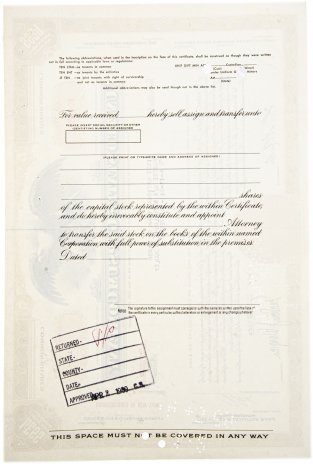 The following abbreviations, when used in the inscription on the face of this certificate, shall be construed as though they were written
out in full according to applicable laws or regulations:
TEN COM—as tenants in common UNIF GIFT MIN ACT— Custodian
TEN ENT—as tenants by the entireties (Cust) (Minor)
JT TEN—as joint tenants with right of survivorship under Uniform Gifts to Minors
and not as tenants in common Act
(State)
Additional abbreviations may also be used though not in the above list.
For value received hereby sell, assign and transfer unto
PLEASE INSERT SOCIAL SECURITY OR OTHER
IDENTIFYING NUMBER OF ASSIGNEE
(PLEASE PRINT OR TYPEWRITE NAME AND ADDRESS OF ASSIGNEE)
shares
of the capital stock represented by the within Certificate,
and do hereby irrevocably constitute and appoint
Attorney
to transfer the said stock on the books of the within named
Corporation with full power of substitution in the premises.
Dated
The signature to this assignment must correspond with the name as written upon the face of
the certificate in every particular without alteration or enlargement or any change whatever
RETURNED-
STATE-
COUNTY-
DATE-
APPROVED
THIS SPACE MUST NOT BE COVERED IN ANY WAY